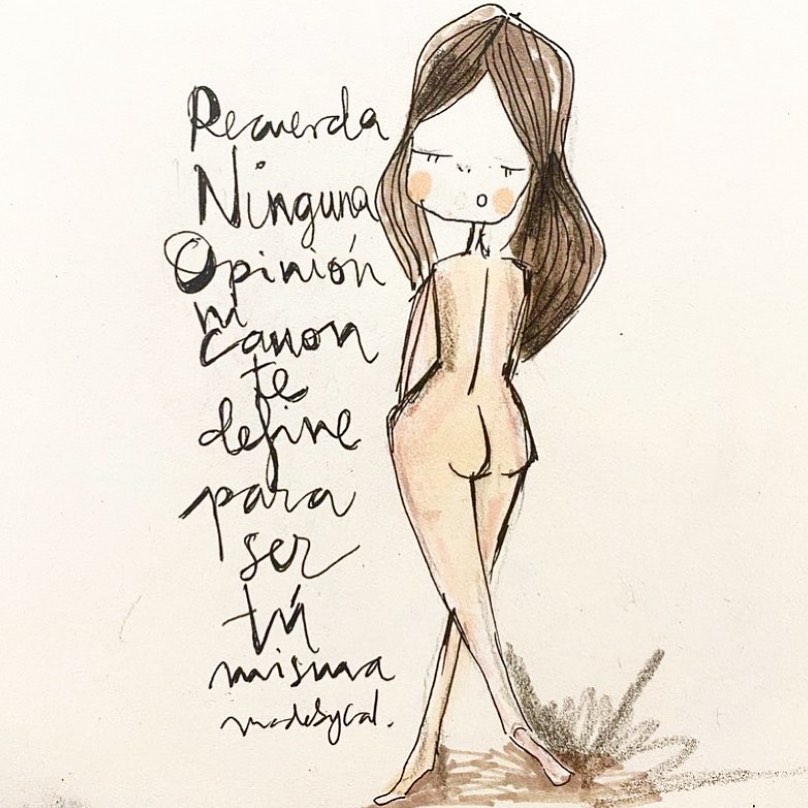 Recuerda
Ninguna
Opinión
ni
canon
te
define
para
ser
tú
misma
madebycal.